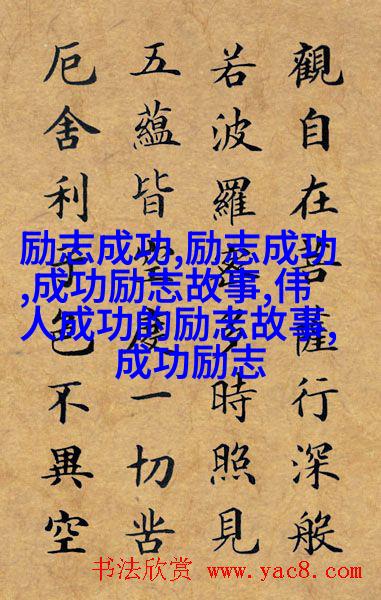 觀自在菩薩行深般
若波羅蜜多時照見
五蘊皆空度一切苦
厄舍利子色不異空
励志成功,励志成功
,成功励志故事,伟
人成功的励志故事,
成功励志
书法欣赏 www.yac8.com